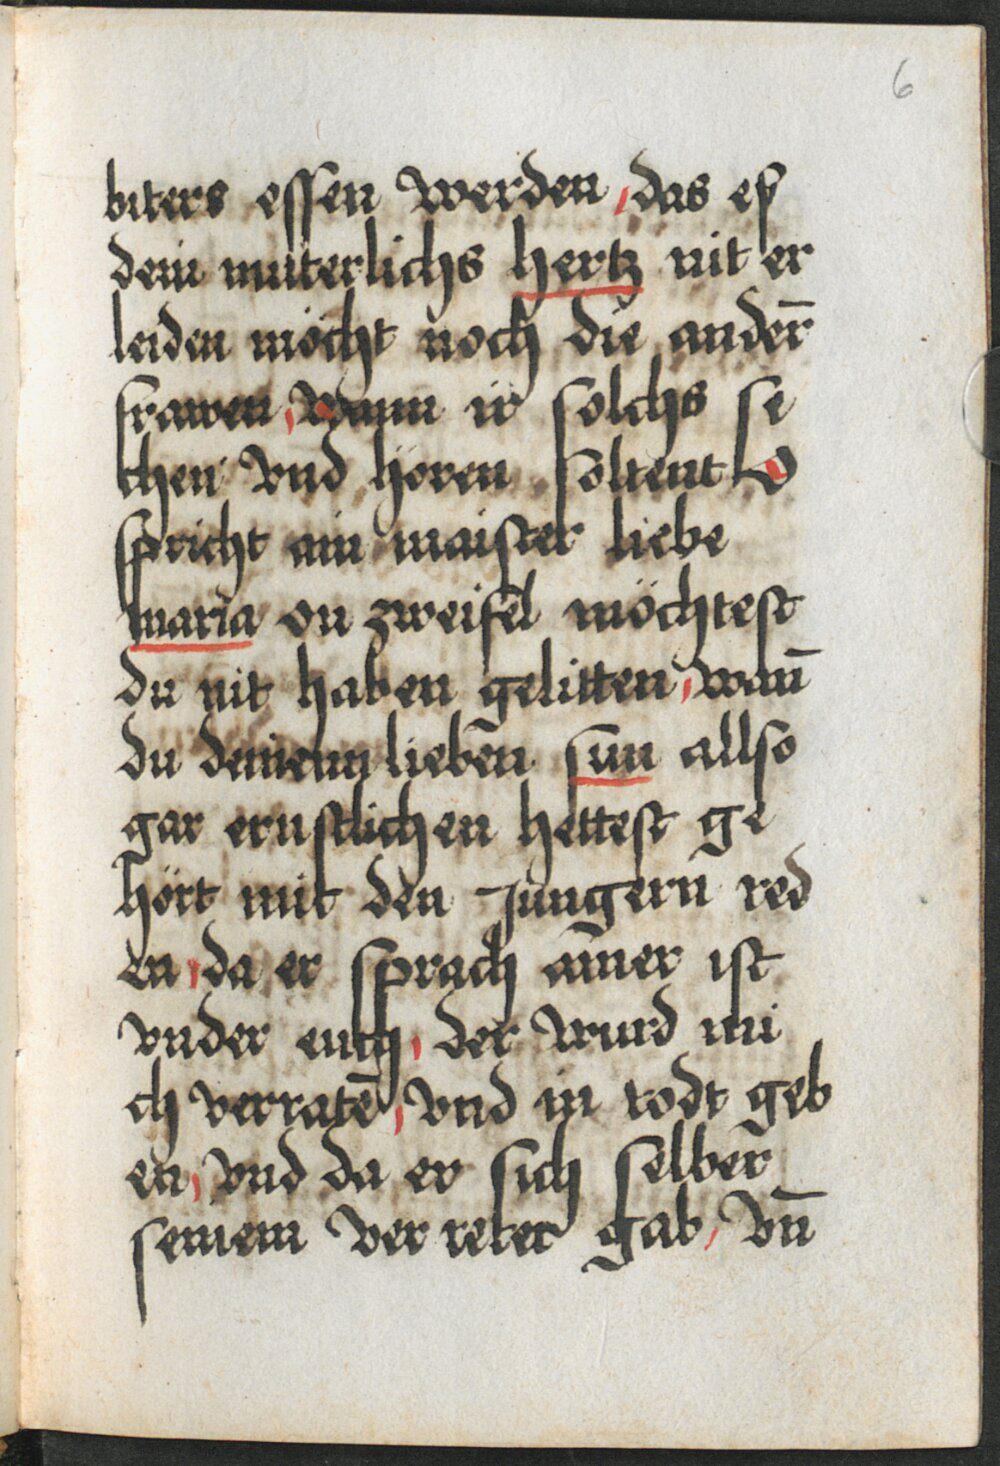 6
biters essen werden, das eß
dein muterlichs hertz nit er
leiden möcht noch die ander̄
frawen, Wann ir solchs se
chen vnd hören soltent O
spricht ain maister liebe
maria on zweifel möchtest
du nit haben gelitten, wan̄
du deinenn lieben sun allso
gar ernstlichen hettest ge
hört mit den Jungern red
en, da er sprach ainer ist
vnder euch, der wurd mi
ch verraten̄, vnd in todt geb
en, vnd da er sich selber
seinem ver reter gab, vn̄